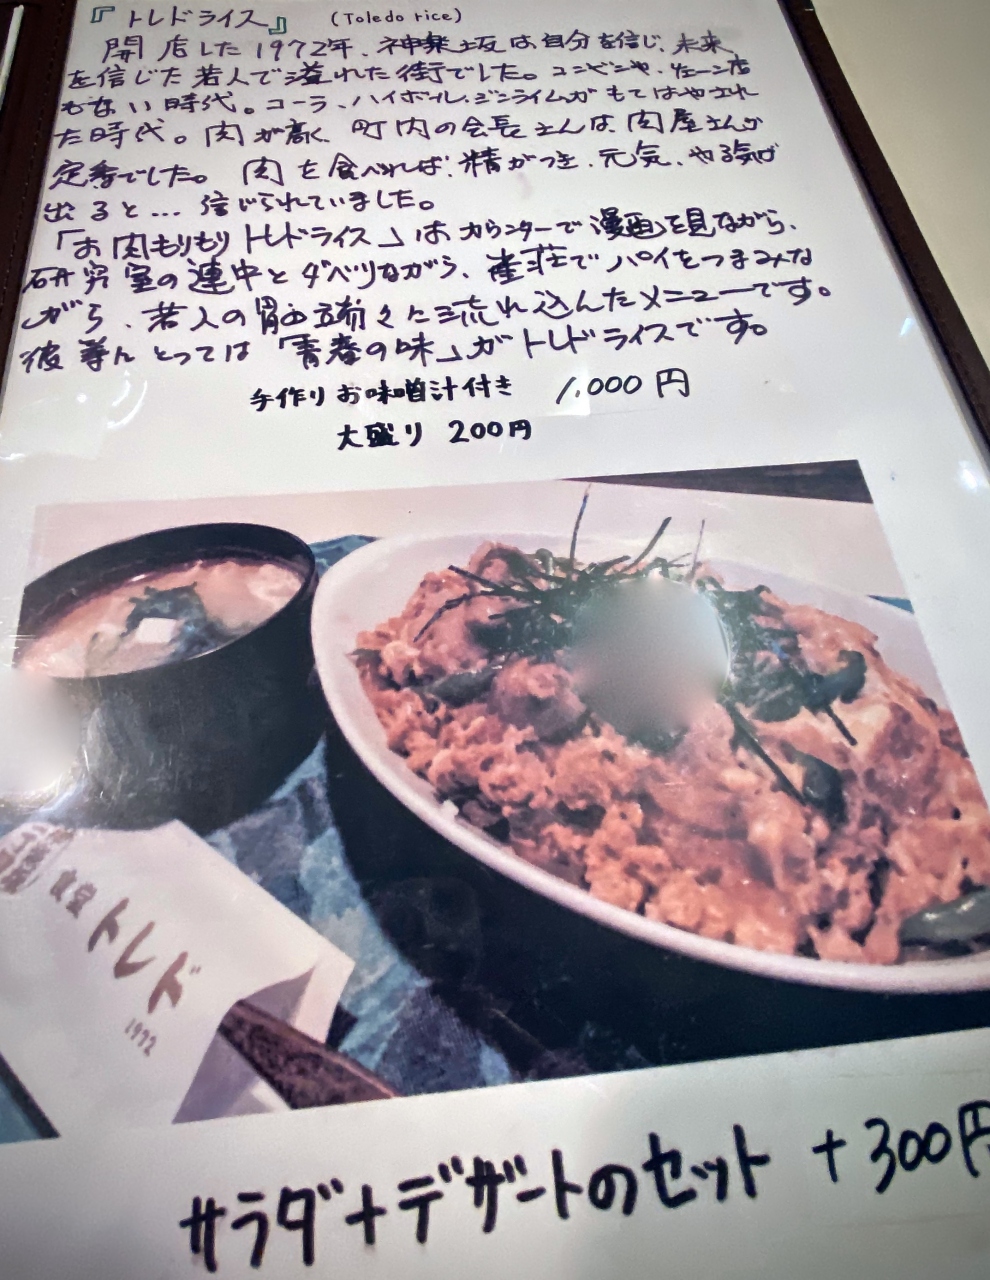 『トレドライス』 (Toledo rice)
開店した1972年、神楽坂は、自分を信じ、未来
を信じた若人で溢れた街でした。コンビニや、チェーン店
もない時代。コーラ、ハイボール、ジンライムがもてはやされ
た時代。肉が高く、町内の会長さんは、肉屋さんが
定番でした。肉を食べれば、精がつき、元気、やる気が
出ると…信じられていました。
「お肉もりもりトレドライス」はカウンターで漫画を見ながら、
研究室の連中とダベりながら、雀荘でパイをつまみな
がら、若人の胃に流れ込んだメニューです。
彼等にとっては「青春の味」がトレドライスです。
手作りお味噌汁付き 1,000円
大盛り 200円
食堂 トレド
1972
サラダ+デザートのセット +300円